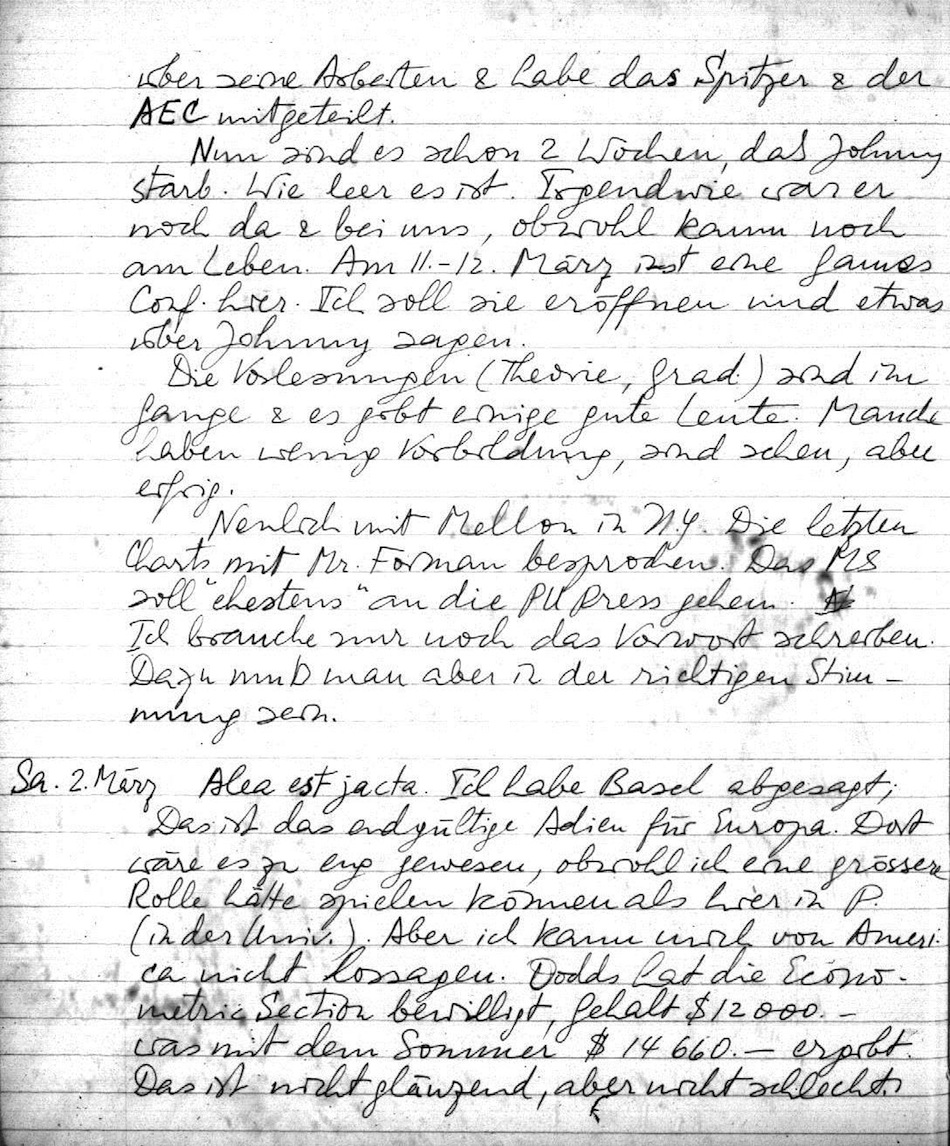 über seine Arbeiten & habe das Spitzer & der
AEC mitgeteilt.
Nun sind es schon 2 Wochen, daß Johnny
starb. Wie leer es ist. Irgendwie war er
noch da & bei uns, obwohl kaum noch
am Leben. Am 11.-12. März ist eine Games
Conf. hier. Ich soll sie eröffnen und etwas
über Johnny sagen.
Die Vorlesungen (Theorie, Grad.) sind im
Gange & es gibt einige gute Leute. Manche
haben wenig Vorbildung, sind scheu, aber
eifrig.
Neulich mit Mellon in N.Y. Die letzten
Charts mit Mr. Forman besprochen. Das MS
soll "ehestens" an die PUPress gehen.
Ich brauche nur noch das Vorwort schreiben.
Dazu muß man aber in der richtigen Stim-
mung sein.
Sa. 2. März Alea est jacta. Ich habe Basel abgesagt;
Das ist das endgültige Adieu für Europa. Dort
wäre es zu eng gewesen, obwohl ich eine grössere
Rolle hätte spielen können als hier in P.
(in der Univ.). Aber ich kann mich von Ameri-
ca nicht lossagen. Dodds hat die Econo-
metric Section bewilligt, Gehalt $12000.-
was mit dem Sommer $ 14 660.- ergibt.
Das ist nicht glänzend, aber nicht schlecht.